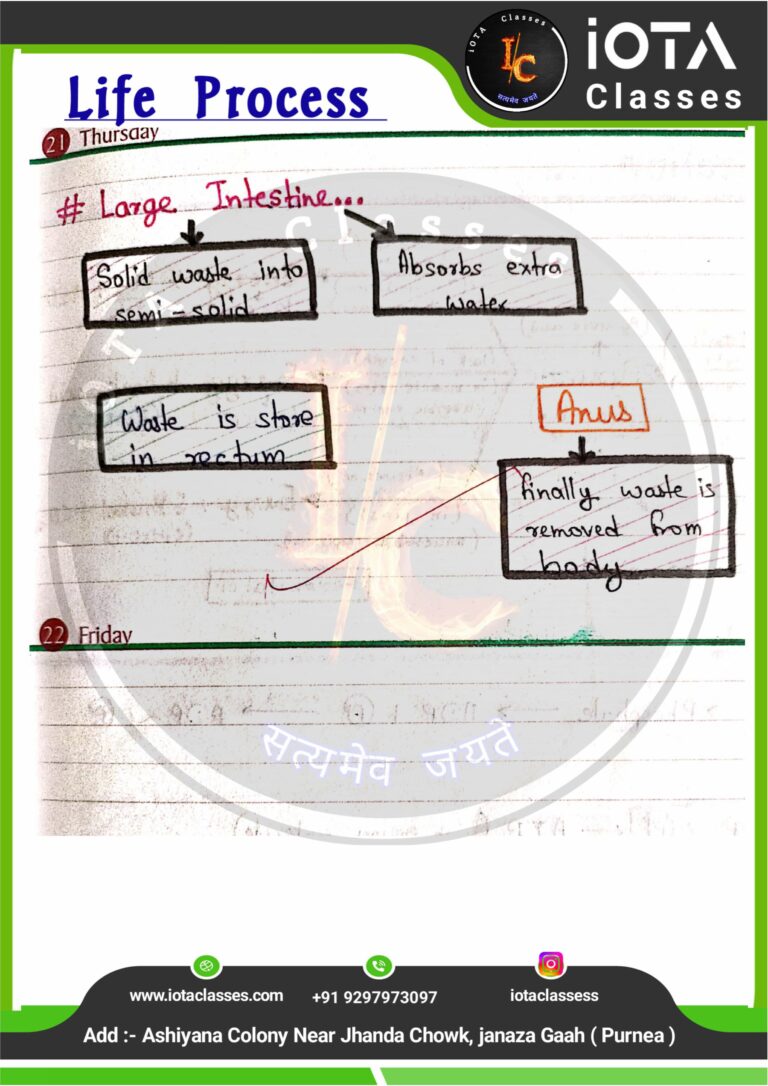 iOTA Classes
I/C
सत्यमेव जयते
iOTA
Classes
Life Process
21 Thursday
# Large Intestine...
Solid waste into
semi-solid
Absorbs extra
water
Waste is store
in rectum
Anus
finally waste is
removed from
body
iOTA Classes
I/C
22 Friday
सत्यमेव जयते
www.iotaclasses.com
+91 9297973097
iotaclassess
Add :- Ashiyana Colony Near Jhanda Chowk, janaza Gaah ( Purnea )